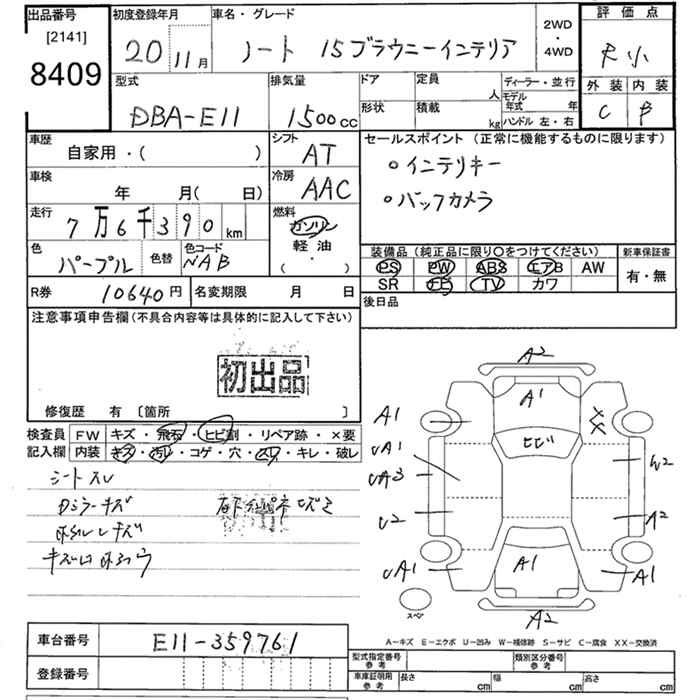 出品番号
[2141]
8409
初度登録年月
20 11月
車名・グレード
ノート 15ブラウニーインテリア
2WD
・
4WD
評価点
外装 内装
C B
型式
DBA-E11
排気量
1500cc
ドア
定員 人
形状
積載 kg
ディーラー・並行
モデル年式 年
ハンドル 左・右
車歴
自家用・( )
シフト
AT
車検
年 月( 日)
冷房
AAC
走行
7万6千390km
燃料
ガソリン
軽油
( ・ )
色
パープル
色替
色コード
NAB
セールスポイント (正常に機能するものに限ります)
○インテリキー
○バックカメラ
装備品(純正品に限り○をつけてください)
PS PW ABS エアB AW
SR ナビ TV カワ
新車保証書
有・無
R券
10640円
名変期限 月 日
後日品
注意事項申告欄(不具合内容等は具体的に記入して下さい)
初出品
修復歴 有 〔箇所 〕
検査員
記入欄
FW キズ・飛石・ヒビ割・リペア跡・×要
内装 キズ・汚レ・コゲ・穴・スレ・キレ・破レ
シートスレ
A2
A1
ヒビ
A1
XX
UA1
UA3
U2
UA1
W2
A2
A1
A1
A2
スペア
A−キズ E−エクボ U−凹み W−補修跡 S−サビ C−腐食 XX−交換済
車台番号
E11-359761
登録番号
型式指定番号
参考
類別区分番号
参考
車庫証明用
参考
長さ cm
幅 cm
高さ cm